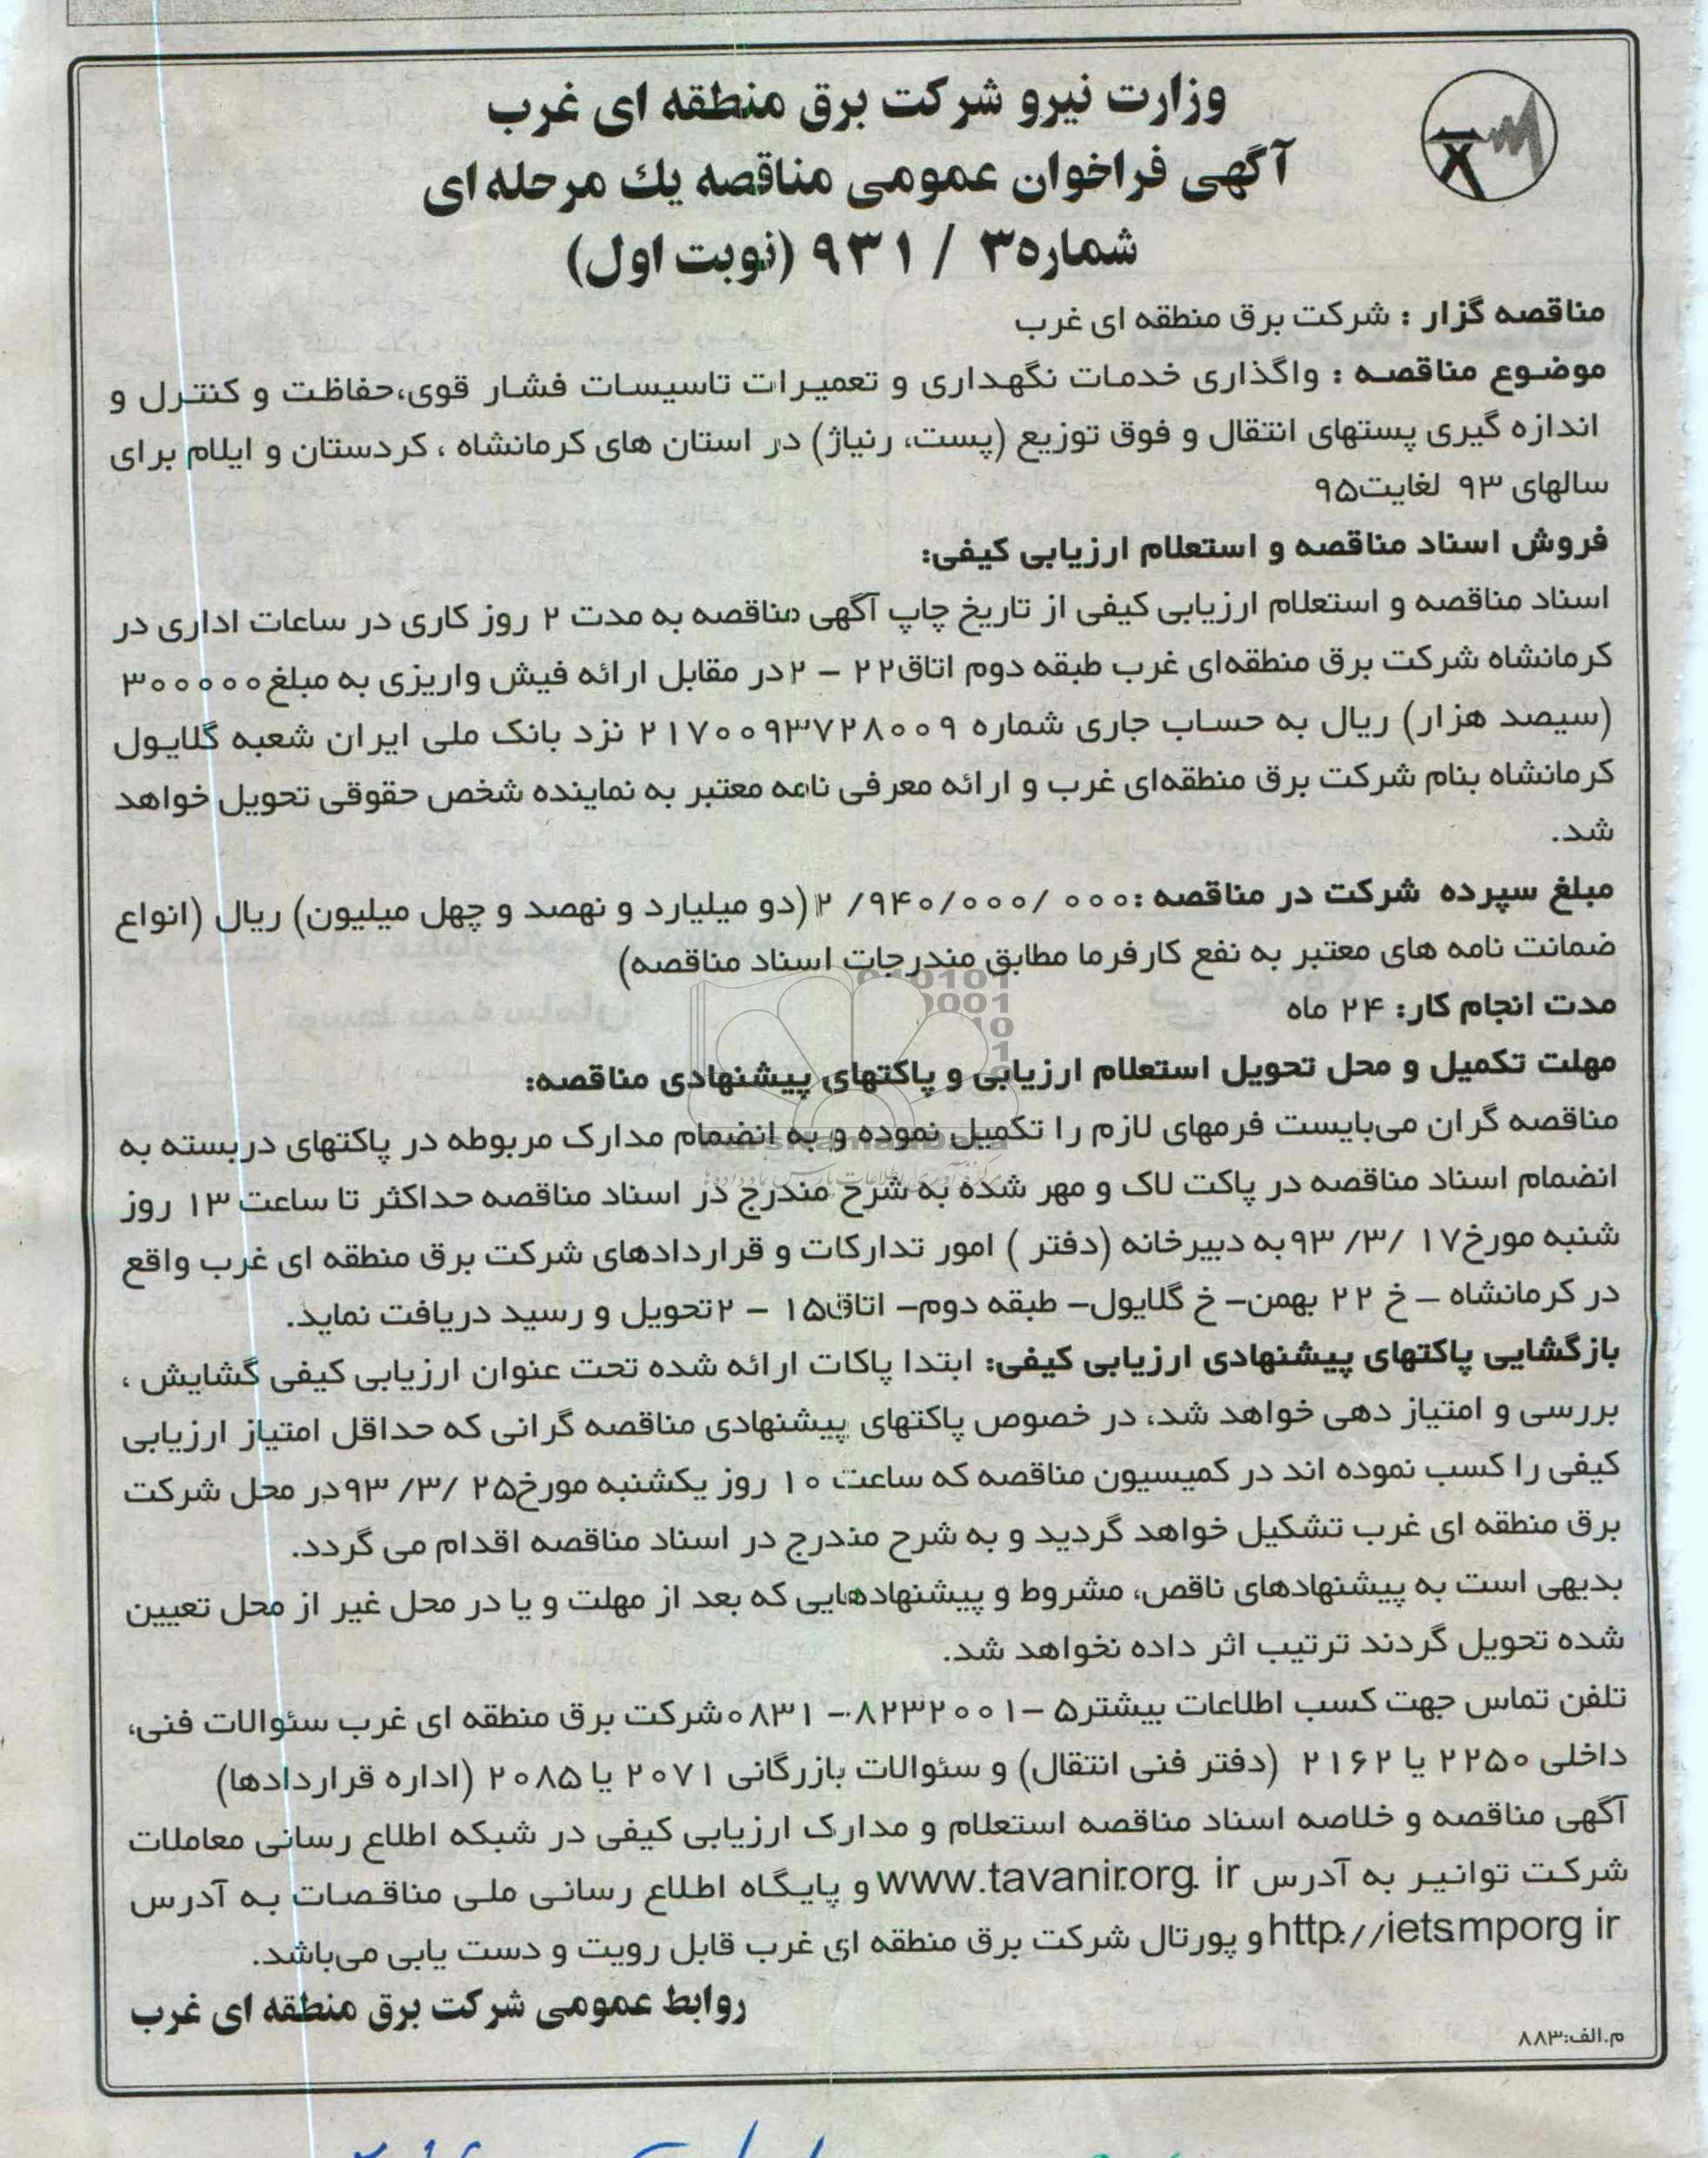 وزارت نیرو شرکت برق منطقه ای غرب
آگهی فراخوان عمومی مناقصه یك مرحله ای
شماره۳ / ۹۳۱ (نوبت اول)
مناقصه گزار : شرکت برق منطقه ای غرب
موضوع مناقصه : واگذاری خدمات نگهداری و تعمیرات تاسیسات فشار قوی،حفاظت و کنترل و
اندازه گیری پستهای انتقال و فوق توزیع (پست، رنیاژ) در استان های کرمانشاه ، کردستان و ایلام برای
سالهای ۹۳ لغایت۹۵
فروش اسناد مناقصه و استعلام ارزیابی کیفی:
اسناد مناقصه و استعلام ارزیابی کیفی از تاریخ چاپ آگهی مناقصه به مدت ۲ روز کاری در ساعات اداری در
کرمانشاه شرکت برق منطقه‌ای غرب طبقه دوم اتاق۲۲ – ۲در مقابل ارائه فیش واریزی به مبلغ۳۰۰۰۰۰
(سیصد هزار) ریال به حساب جاری شماره ۲۱۷۰۰۹۳۷۲۸۰۰۹ نزد بانک ملی ایران شعبه گلایول
کرمانشاه بنام شرکت برق منطقه‌ای غرب و ارائه معرفی نامه معتبر به نماینده شخص حقوقی تحویل خواهد
شد.
مبلغ سپرده شرکت در مناقصه :۰۰۰ /۲ /۹۴۰/۰۰۰(دو میلیارد و نهصد و چهل میلیون) ریال (انواع
ضمانت نامه های معتبر به نفع کارفرما مطابق مندرجات اسناد مناقصه)
مدت انجام کار: ۲۴ ماه
مهلت تکمیل و محل تحویل استعلام ارزیابی و پاکتهای پیشنهادی مناقصه:
مناقصه گران می‌بایست فرمهای لازم را تکمیل نموده و به انضمام مدارک مربوطه در پاکتهای دربسته به
انضمام اسناد مناقصه در پاکت لاک و مهر شده به شرح مندرج در اسناد مناقصه حداکثر تا ساعت ۱۳ روز
شنبه مورخ۱۷ /۳/ ۹۳به دبیرخانه (دفتر ) امور تدارکات و قراردادهای شرکت برق منطقه ای غرب واقع
در کرمانشاه – خ ۲۲ بهمن– خ گلایول– طبقه دوم– اتاق۱۵ – ۲تحویل و رسید دریافت نماید.
بازگشایی پاکتهای پیشنهادی ارزیابی کیفی: ابتدا پاکات ارائه شده تحت عنوان ارزیابی کیفی گشایش ،
بررسی و امتیاز دهی خواهد شد، در خصوص پاکتهای پیشنهادی مناقصه گرانی که حداقل امتیاز ارزیابی
کیفی را کسب نموده اند در کمیسیون مناقصه که ساعت ۱۰ روز یکشنبه مورخ۲۵ /۳/ ۹۳در محل شرکت
برق منطقه ای غرب تشکیل خواهد گردید و به شرح مندرج در اسناد مناقصه اقدام می گردد.
بدیهی است به پیشنهادهای ناقص، مشروط و پیشنهادهایی که بعد از مهلت و یا در محل غیر از محل تعیین
شده تحویل گردند ترتیب اثر داده نخواهد شد.
تلفن تماس جهت کسب اطلاعات بیشتر۵ –۸۲۳۲۰۰۱ – ۰۸۳۱شرکت برق منطقه ای غرب سئوالات فنی،
داخلی ۲۲۵۰ یا ۲۱۶۲ (دفتر فنی انتقال) و سئوالات بازرگانی ۲۰۷۱ یا ۲۰۸۵ (اداره قراردادها)
آگهی مناقصه و خلاصه اسناد مناقصه استعلام و مدارک ارزیابی کیفی در شبکه اطلاع رسانی معاملات
شرکت توانیر به آدرس www.tavanir.org. ir و پایگاه اطلاع رسانی ملی مناقصات به آدرس
http://iets.mporg ir و پورتال شرکت برق منطقه ای غرب قابل رویت و دست یابی می‌باشد.
روابط عمومی شرکت برق منطقه ای غرب
م.الف:۸۸۳